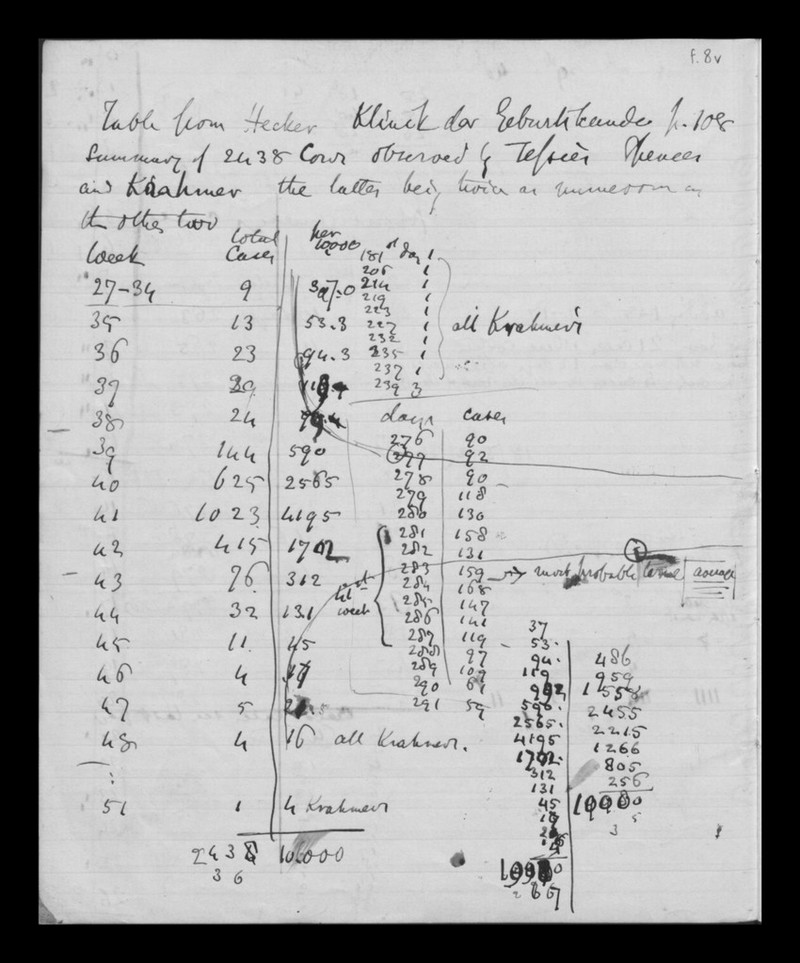 f. 8v
Table from Hecker Klinik der Geburtskunde p. 108
Summary of 2438 Cows observed by Tessier Spencer
and Krahmer the latter being twice as numerous as
the other two
Week total Cases per 10000
27-34 9 37.0
35 13 53.3
36 23 94.3
37 29
38 24
39 144 590
40 625 2565
41 1023 4195
42 415 1702
43 76 312
44 32 131
45 11 45
46 4
47 5
48 4 16 all Krahmer.
51 1 4 Krahmer
2438 10,000
3 6
181st day 1
206 1
214 1
219 1
223 1
227 1
232 1
235 1
237 1
239 3
all Krahmer's
days cases
276 90
277 92
278 90
279 118
280 130
281 158
282 131
283 159 most probable time average
284 168
285 147
286 141
287 119
288 97
289 107
290 61
291 59
41st week
37
53.
94.
119
590.
2565.
4195
1702.
312
131
45
486
959
1558
2455
2215
1266
805
256
10000
3 5